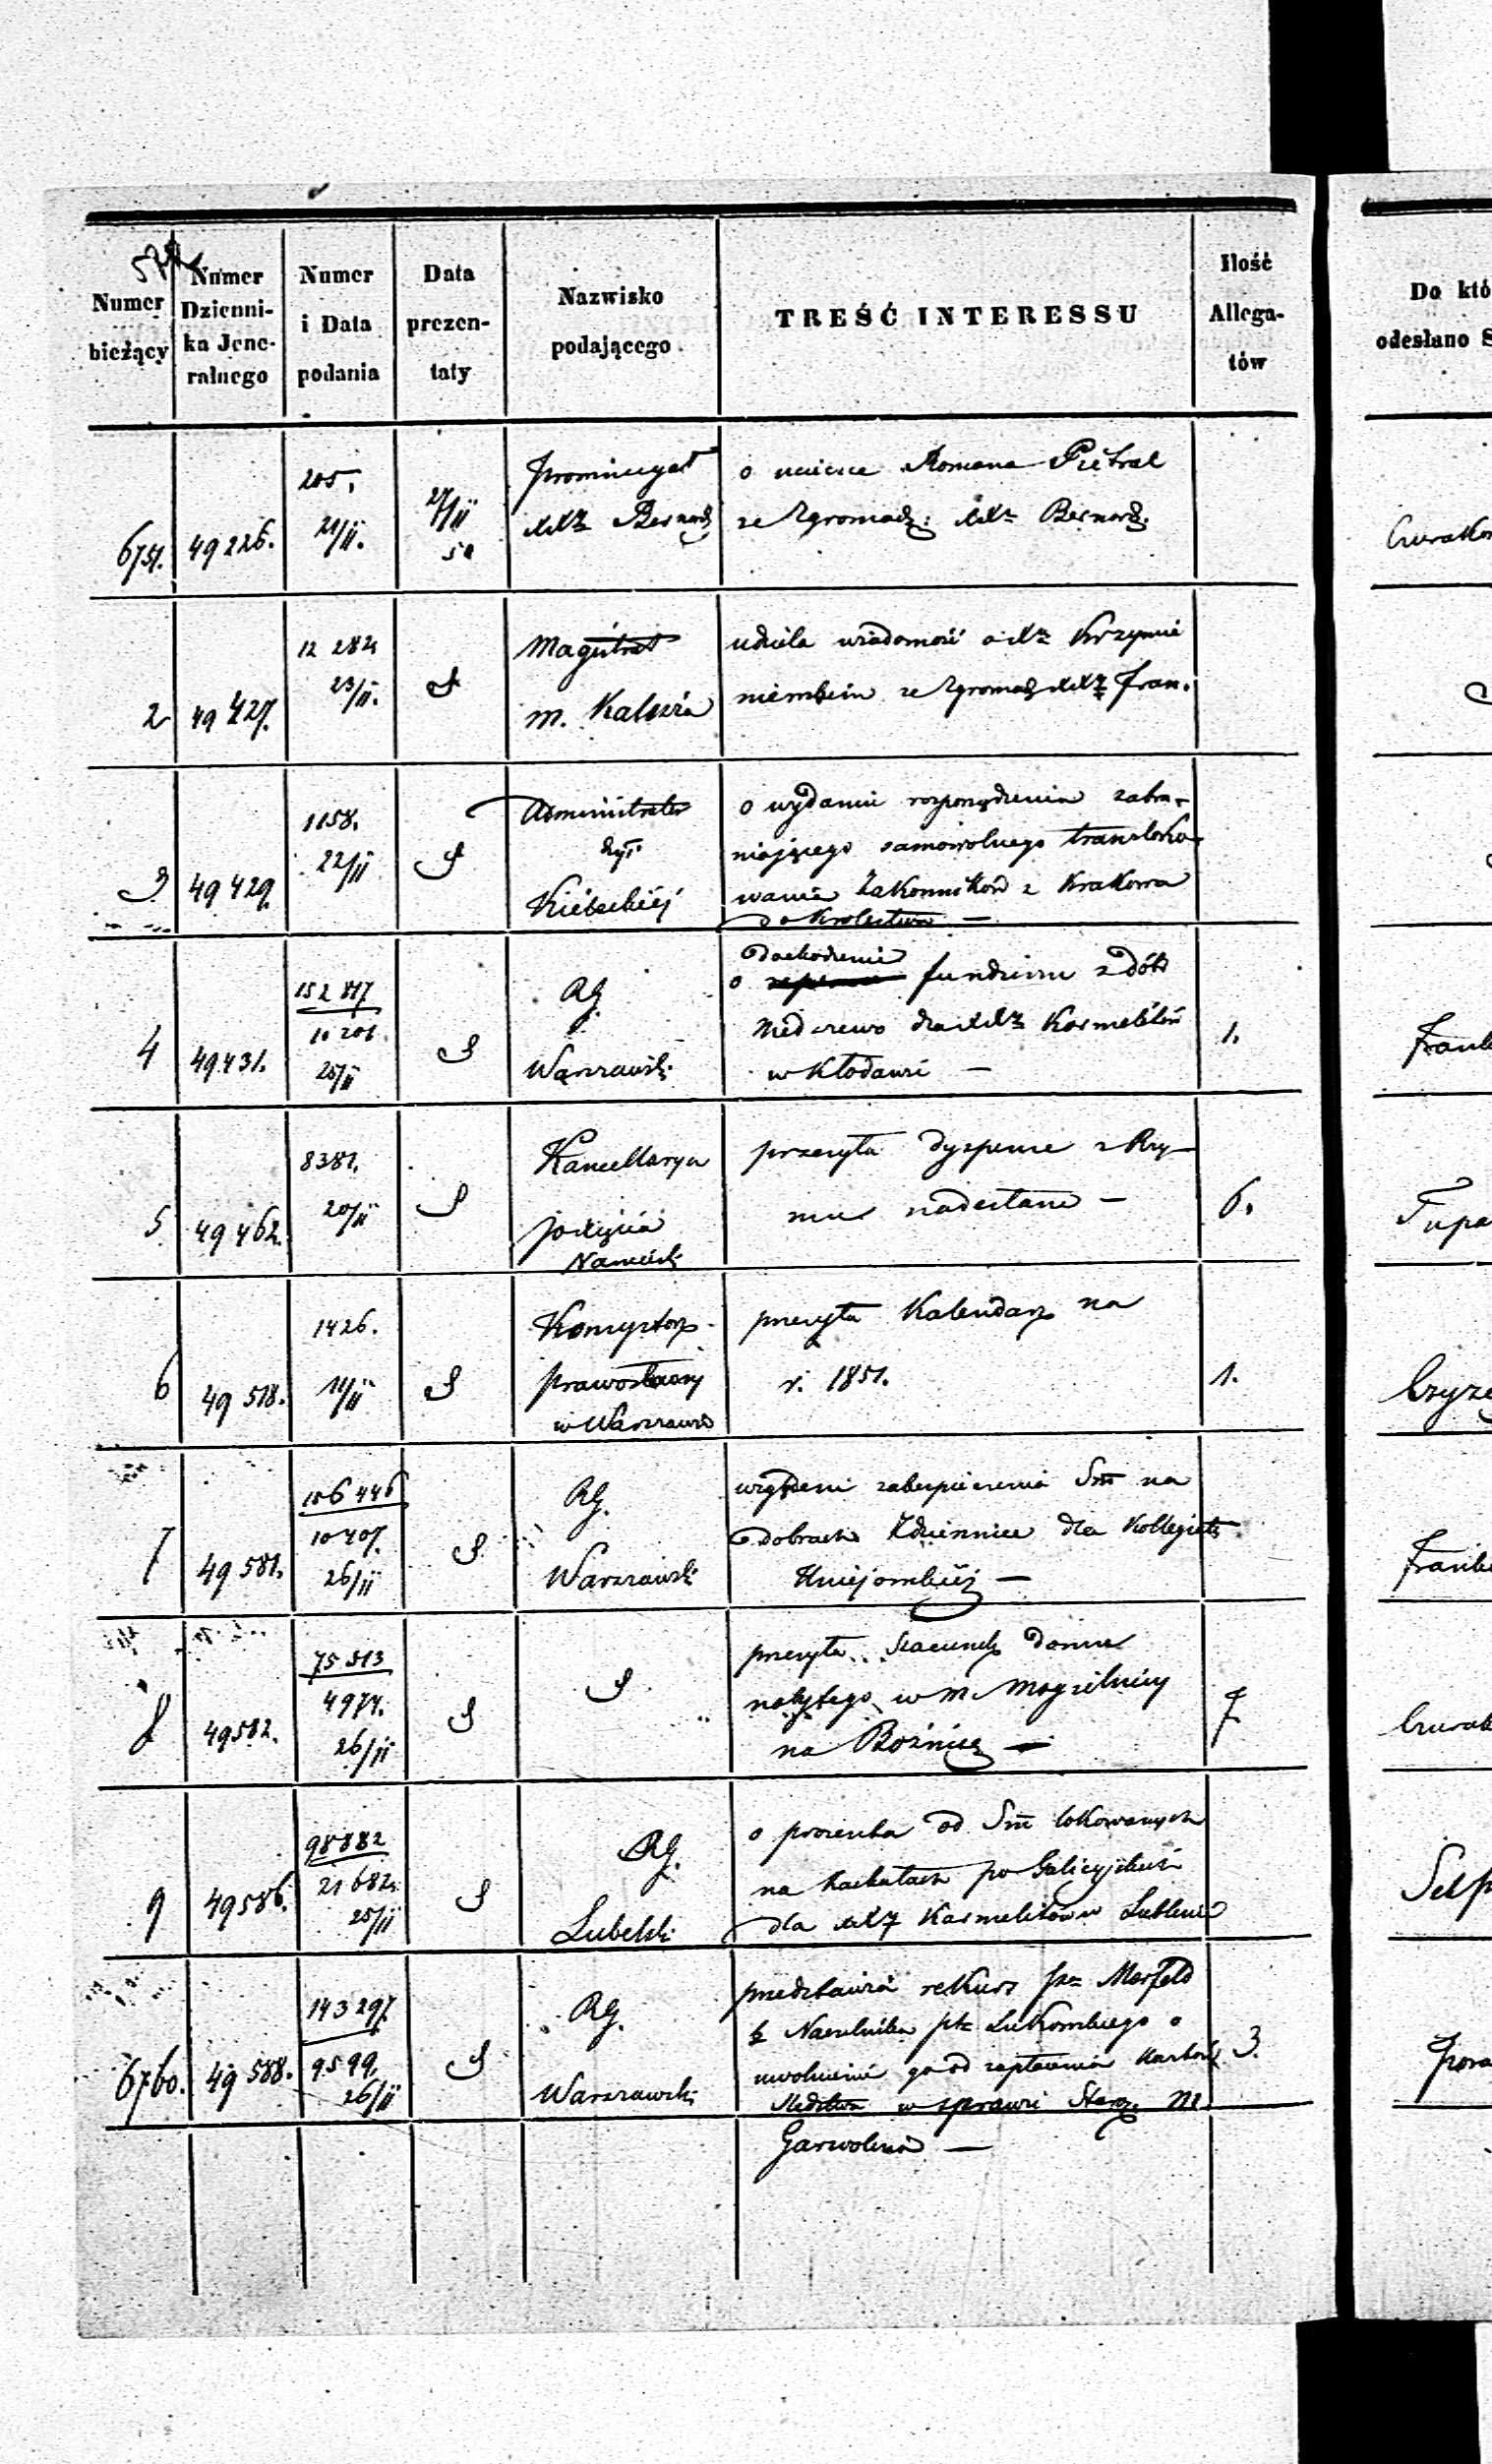 Numer
bieżący
Numer
Dzienni-
ka Jene-
ralnego
Numer
i Data
podania
Data
prezen-
taty
Nazwisko
podającego
TREŚĆ INTERESSU
Ilość
Allega-
tów
Do któ
odesłano S
6751. 49226. 205,
21/11.
27/11
50
Prowincyał
XXż Bernardz
o ucieczce Romana Pietrak
ze Zgromadz: XXż Bernardz.
2 49427. 12 282
23/11.
Magistrat
m. Kalisza
udziela wiadomość o Xż Krzymie
niewskim ze Zgromadz XXż Fran.
3 49429. 1158.
22/11
Administrator
dyec
Kieleckiej
o wydanie rozporządzenia zabra-
niającego samowolnego transloko-
wania Zakonników z Krakowa
do Królestwa —
4 49431. 152 817
10 201
25/11
RG.
Warszawski
dochodzenie
o funduszu z dóbr
dla XXż Karmelitów
w Kłodawie —
1.
5 49462. 8381.
20/11
Kancellarya
Xięcia
Namiestn
przesyła dyspense z Rzy-
mu nadesłane —
6.
6 49518. 1426.
11/11
Konsystorz
prawosławny
w Warszawie
przesyła Kalendarz na
r. 1851.
1.
7 49581. 106 446
10 407.
26/11
RG.
Warszawski
względem zabezpieczenia Sm̄ na
dobrach Zdziennice dla Kollegiaty
Uniejowskiej —
8 49582. 75 513
4974.
26/11
przesyła Szacunek domu
nabytego w m. Mogielnicy
na Bożnicę —
7.
9 49586. 98882
21682.
25/11
RG.
Lubelski
o procenta od Sm̄ lokowanych
na kahałach po Galicyjskich
dla XXż Karmelitów w Lublinie
6760. 49588. 143 297.
9599.
26/11
RG.
Warszawski
przedstawia rekurs
b. Naczelnika ptu Łukowskiego o
uwolnienie go od zapłacenia kosztów
śledztwa w sprawie Starz. m.
Garwolina —
3.